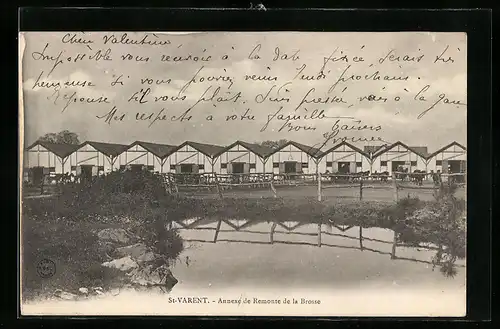 Cher Valentine
Impossible vous revoir à la date fixée, serais très
heureuse si vous pouviez venir Jeudi prochain.
Réponse s'il vous plait, suis pressée, vais à la gare
Mes respects à votre famille
Bons baisers
St-VARENT. - Annexe de Remonte de la Brosse